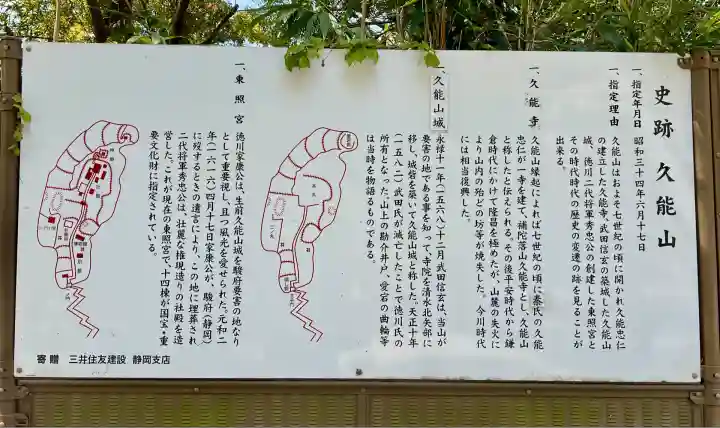 史跡 久能山
一、指定年月日 昭和三十四年六月十七日
一、指定理由 久能山はおよそ七世紀の頃に開かれ久能忠仁
の建立した久能寺、武田信玄の築城した久能山
城、徳川二代将軍秀忠公の創建した東照宮と
その時代時代の歴史の変遷の跡を見ることが
出来る。
一、久能寺 久能山縁起によれば七世紀の頃に秦氏の久能
忠仁が一寺を建て、補陀落山久能寺とし、久能山
と称したと伝えられる。その後平安時代から鎌
倉時代にかけて隆昌を極めたが、山麓の失火に
より山内の殆どの坊等が焼失した。今川時代
には相当復興した。
一、久能山城 永禄十一年(一五六八)十二月武田信玄は、当山が
要害の地である事を知って、寺院を清水北矢部に
移し、城砦を築いて久能山城と称した。天正十年
(一五八二)武田氏が滅亡したことで徳川氏の
所有となった。山上の勘介井戸、愛宕の曲輪等
は当時を物語るものである。
一、東照宮 徳川家康公は、生前久能山城を駿府要害の地なり
として重要視し、且つ風光を愛せられた。元和二
年(一六一六)四月十七日家康公が、駿府(静岡)
に歿するときの遺言により、この地に埋葬され
二代将軍秀忠公は、壮麗な権現造りの社殿を造
営した。これが現在の東照宮で、十四棟が国宝・重
要文化財に指定されている。
寄贈 三井住友建設 静岡支店